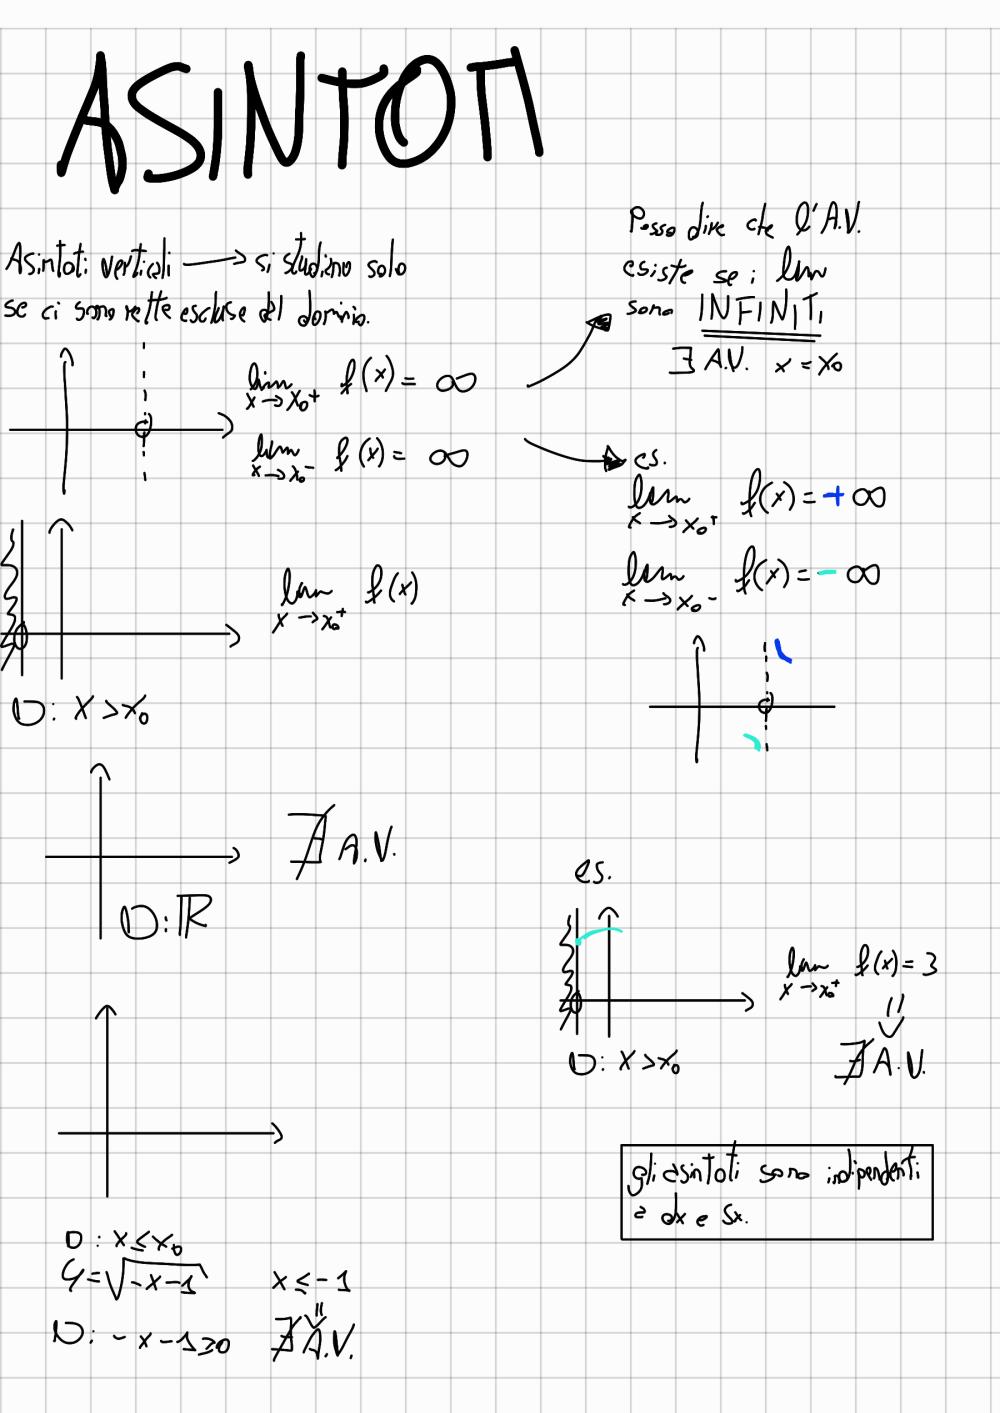 ASINTOTI
Asintoti verticali → si studiano solo
se ci sono rette escluse dal dominio.
lim x→x₀⁺ f(x) = ∞
lim x→x₀⁻ f(x) = ∞
Posso dire che l'A.V.
esiste se i lim
sono INFINITI
∃ A.V. x = x₀
es.
lim x→x₀⁺ f(x) = +∞
lim x→x₀⁻ f(x) = -∞
lim x→x₀⁺ f(x)
D: x > x₀
∄ A.V.
D: ℝ
es.
lim x→x₀⁺ f(x) = 3
⇓
∄ A.V.
D: x > x₀
gli asintoti sono indipendenti
a dx e sx.
D: x ≤ x₀
y = √(-x-1)
x ≤ -1
⇓
D: -x-1≥0
∄ A.V.